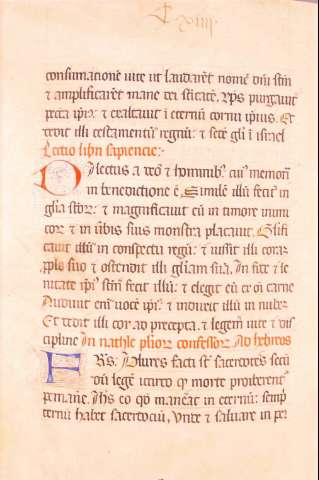 C xiiij
consumatione͂ uite ut laudare͂t nome͂ d͂ni s͂cm
⁊ amplificare͂t mane dei s͂citate͂. x͂ps purgauit
pecta ip͂ius ⁊ exaltauit i͂ eternu͂ cornu ipsius. Et
dedit illi testamentu͂ regnu͂. ⁊ sede͂ gl͂e i͂ israel
Lectio libri sapiencie.
Dilectus a deo ⁊ hominib͂. cui͂ memori͂
in benedictione e͂. Simile͂ illu͂ fecit in
gl͂ia s͂cor͂. ⁊ magnificauit eu͂ in timore inimi
cor͂ ⁊ in u͂bis suis monstra placauit. Gl͂ifi
cauit illu͂ in conspectu regu͂. ⁊ iussit illi cora͂
pplo suo ⁊ ostendit illi gl͂iam sua͂. In fide ⁊ le
nitate ip͂i͂ s͂cm fecit illu͂. ⁊ elegit eu͂ ex o͂i carne
Audiuit eni͂ uoce͂ ip͂i͂. ⁊ induxit illu͂ in nube͂
Et dedit illi cor ad precepta. ⁊ lege͂m uite ⁊ dis
cipline In natale plior͂ confessor͂. Ad hebreos
Fr͂s. Plures facti s͂t sacerdotes secu͂
du͂ lege͂ iccirco q͂ morte prohiberent͂
permane͂. Ih͂s eo q͂ mane͂at in eternu͂. semp͂
ternu͂ habet sacerdociu͂, Unde ⁊ saluare in per